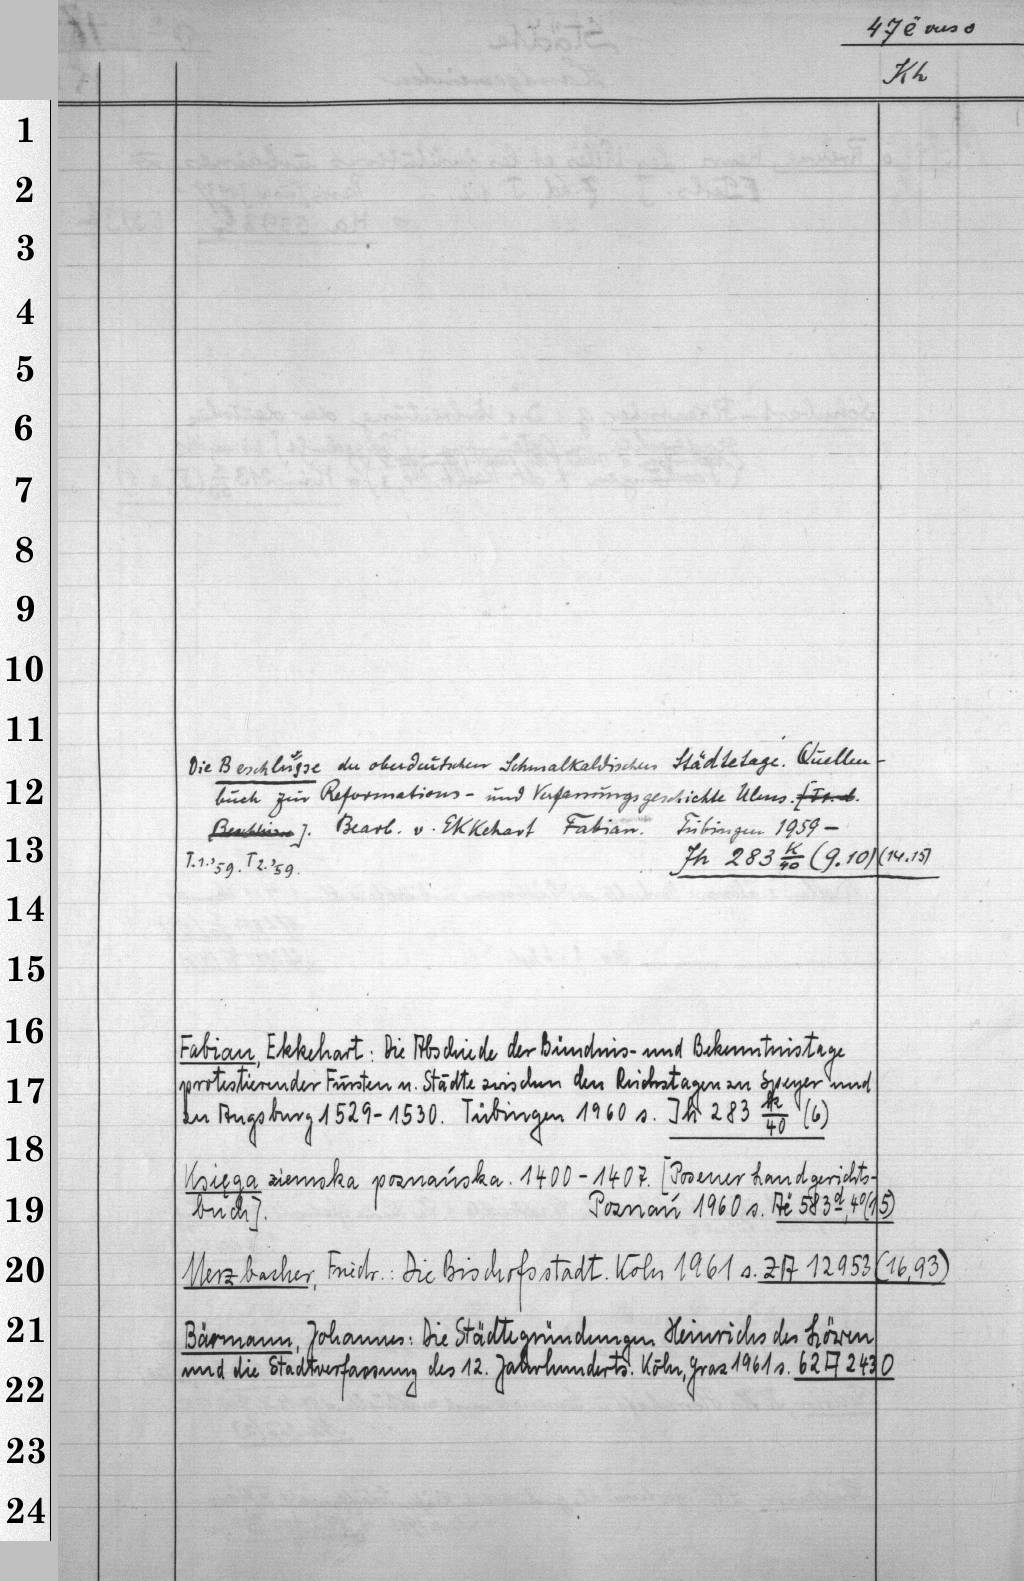 47ë verso
Kh
1
2
3
4
5
6
7
8
9
10
11
12
13
14
15
16
17
18
19
20
21
22
23
24
Die Beschlüsse der oberdeutschen Schmalkaldischen Städtetage. Quellen-
buch zur Reformations- und Verfassungsgeschichte Ulms.
]. Bearb. v. Ekkehart Fabian. Tübingen 1959 –
T.1.'59. T2.'59. Jh 283 K/40 (9.10) (14.15)
Fabian, Ekkehart: Die Abschiede der Bündnis- und Bekenntnistage
protestierender Fürsten u. Städte zwischen den Reichstagen zu Speyer und
zu Augsburg 1529-1530. Tübingen 1960 s. Jh 283 k/40 (6)
Księga ziemska poznańska. 1400-1407. [Posener Landgerichts-
buch]. Poznań 1960 s. Aë 583d, 40(15)
Merzbacher, Friedr.: Die Bischofsstadt. Köln 1961 s. ZA 12953(16,93)
Bärmann, Johannes: Die Städtegründungen Heinrichs des Löwen
und die Stadtverfassung des 12. Jahrhunderts. Köln, Graz 1961 s. 62 A 2430